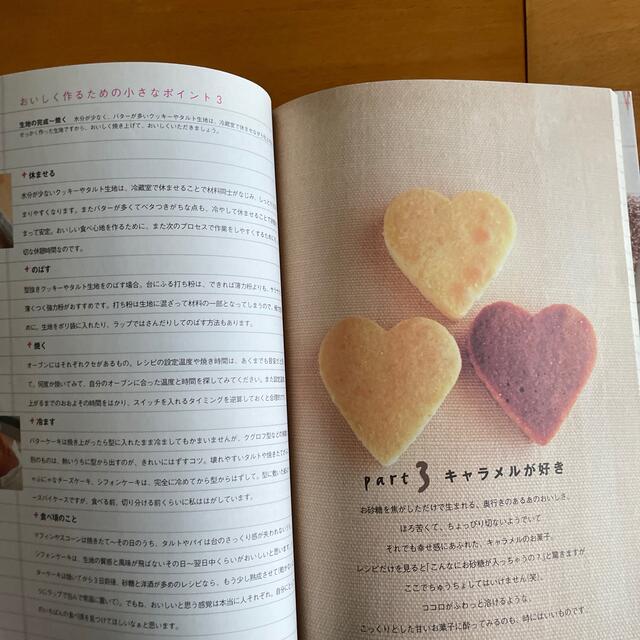 おいしく作るための小さなポイント3
生地の完成〜焼く 水分が少なく、バターが多いクッキーやタルト生地は、冷蔵室で休ませながら
せっかく作った生地ですから、おいしく焼き上げて、おいしくいただきましょう。
休ませる
水分が少ないクッキーやタルト生地は、冷蔵室で休ませることで材料同士がなじみ、しっと
まりやすくなります。またバターが多くてベタつきがちな点も、冷やして休ませることで
まって安定。おいしい食べ心地を作るために、また次のプロセスで作業をしやすくするために
切な休憩時間なのです。
のばす
型抜きクッキーやタルト生地をのばす場合。台にふる打ち粉は、できれば薄力粉よりも、サラサ
薄くつく強力粉がおすすめです。打ち粉は生地に混ざって材料の一部となってしまうので、極
めに。生地をポリ袋に入れたり、ラップではさんだりしてのばす方法もあります。
焼く
オーブンにはそれぞれクセがあるもの。レシピの設定温度や焼き時間は、あくまでも目安だと
て、何度か焼いてみて、自分のオーブンに合った温度と時間を探してみてください。また設定温
上がるまでのおおよその時間をはかり、スイッチを入れるタイミングを逆算しておくと合理的
冷ます
バターケーキは焼き上がったら型に入れたまま冷ましてもかまいませんが、クグロフ型などの
別のものは、熱いうちに型から出すのが、きれいにはずすコツ。壊れやすいタルトや焼きたて
ゃふにゃなチーズケーキ、シフォンケーキは、完全に冷めてから型からはずして。型に敷いた
ースバイケースですが、食べる前、切り分ける前くらいに私ははがしています。
食べ頃のこと
マフィンやスコーンは焼きたて〜その日のうち、タルトやパイは台のさっくり感が失われない
シフォンケーキは、生地の質感と風味が飛ばないその日〜翌日中くらいがおいしいと思います。
ターケーキは焼いてから3日前後、砂糖と洋酒が多めのレシピなら、もう少し熟成させて
ちにラップで包んで常温に置いて)。でもね、おいしいと思う感覚は本当に人それぞれ。自分にと
のいちばんの食べ頃を見つけてほしいなぁと思います。
part 3 キャラメルが好き
お砂糖を焦がしただけで生まれる、奥行きのあるあのおいしさ。
ほろ苦くて、ちょっぴり切ないようでいて
それでも幸せ感にあふれた、キャラメルのお菓子。
レシピだけを見ると「こんなにお砂糖が入っちゃうの?」と驚きますが
ここでちゅうちょしてはいけません(笑)。
ココロがふわっと溶けるような、
こっくりとした甘いお菓子に酔ってみるのも、時にはいいものです